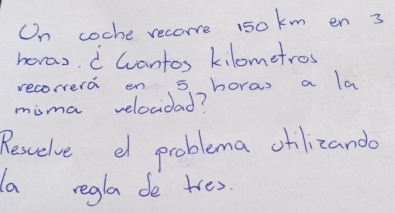 Un coche recorre 150 km en 3
horas. ¿ Cuantos kilometros
recorrerá en 5 horas a la
misma velocidad?
Resuelve el problema utilizando
la regla de tres.